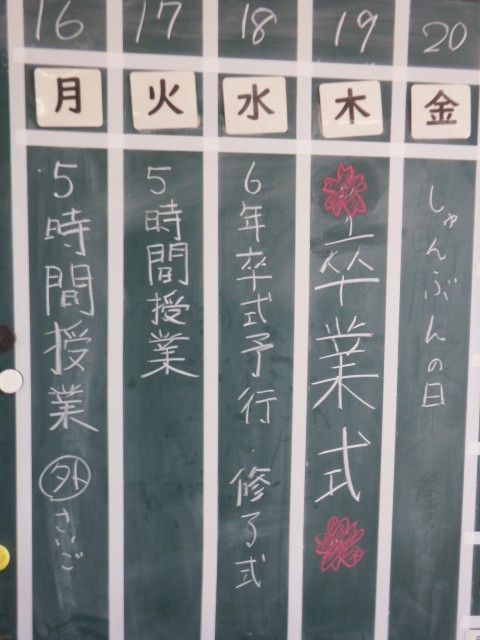 16
月
5時間授業
外さいご
17
火
5時間授業
18
水
6年卒式予行・修了式
19
木
卒業式
20
金
しゅんぶんの日